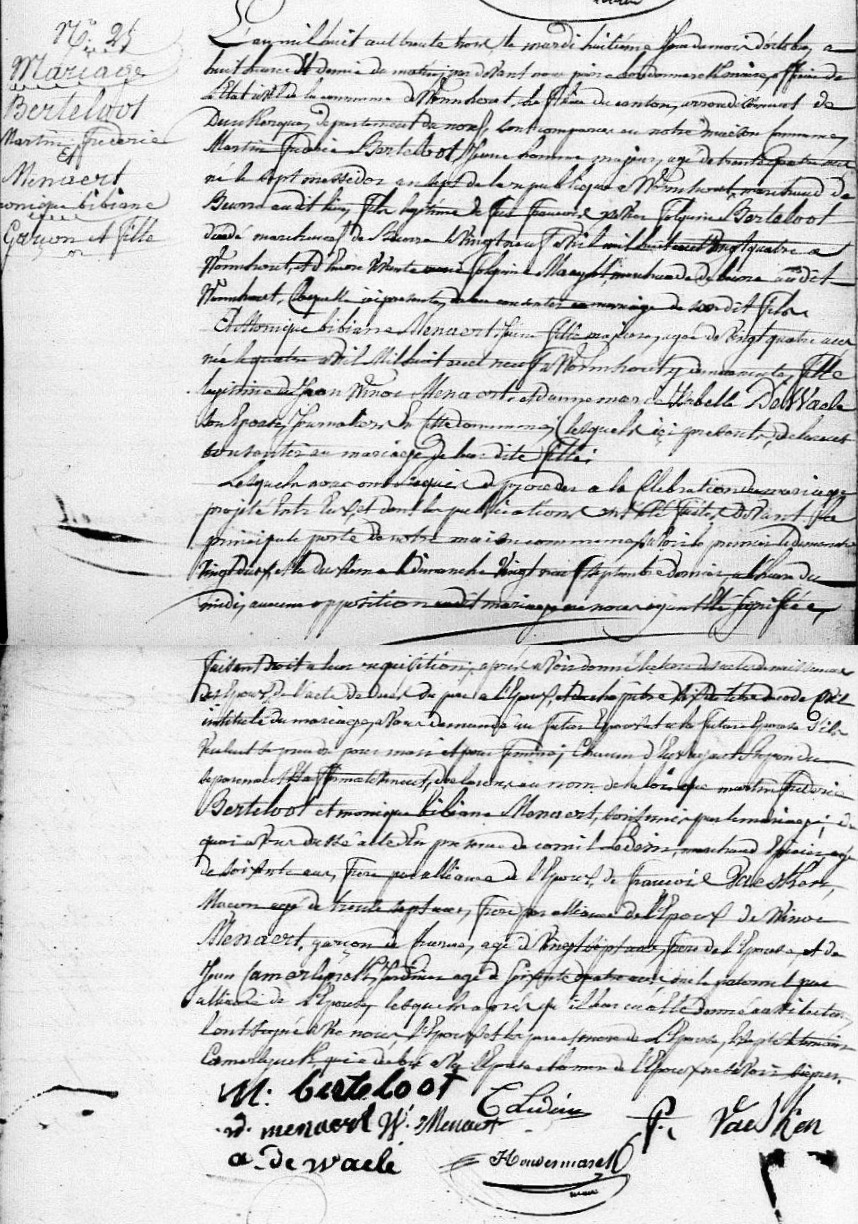 N.° 25
Mariage
Berteloot
Martin Frederic
Et
Menaert
monique bibiane
Garçon et fille
L'an mil huit cent trente trois le mardi huitième Jour du mois d'octobre, a
huit heures et demie du matin, par devant nous officier de
l'Etat civil de la commune de Wormhout, Chef lieu du canton, arrondissement de
Dunkerque, departement du nord, sont comparus en notre maison commune,
Martin Frederic Berteloot, Jeune homme majeur, agé de trente quatre ans
né le sept messidor an sept de la republique a Wormhout, marchand de
Beurre audit lieu, fils legitime de feu francois Berteloot
décédé marchand de Beurre le vingt neuf avril mil huit cent vingt quatre a
Wormhout, et d'Anne marchande de beurre audit
Wormhout, laquelle ici presente, declare consentir au mariage de son dit fils.
Et Monique bibiane Menaert, Jeune fille majeure, agée de vingt quatre ans
née le quatre avril Mil huit cent neuf a Wormhout y demeurante, fille
legitime de Jean Winoc Menaert, et d'anne marie Isabelle DeWaele
son Epouse, Journaliers En cette commune, lesquels ici presents, declarent
consentir au mariage de leur dite fille;
Lesquels nous ont requis de proceder a la Celebration du mariage
projeté Entr'Eux et dont les publications ont été faites devant la
principale porte de notre maison commune, savoir la premiere le dimanche
vingt deux et la deuxieme le dimanche vingt neuf septembre dernier, a l'heure du
midi, aucune opposition audit mariage ne nous ayant été signifiée,
faisant droit a leur requisition, après avoir donné lecture des actes de naissances
des Epoux, de l'acte de décès du pere a l'Epoux, et du chapitre six du titre du code civil
intitulé du mariage, avons demandé au futur Epoux et a la future Epouse s'ils
veulent se prendre pour mari et pour femme; Chacun d'Eux ayant repondu
separement Et affirmativement, declarons au nom de la loi que martin frederic
Berteloot et monique bibiane Menaert, sont unis par le mariage; de
quoi avons dressé acte En presence de marchand Epicier, agé
de soixante ans, frere par alliance de l'Epoux, de francois Vaesken,
Macon agé de trente sept ans, frere par alliance de l'Epoux de Winoc
Menaert, garçon de ferme, agé de vingt sept ans, frere de l'Epouse, et de
Jean Camerlynck, Jardinier agé de soixante quatre ans, oncle paternel par
alliance de l'Epouse, lesquels après qu'il leur en a été donné aussi lecture,
l'ont signé avec nous, l'Epoux et les pere et mere de l'Epouse, Excepté le temoin
Camerlynck qui a déclaré avec l'Epouse et la mere de l'Epoux ne savoir signer.
M. berteloot
menaert W. Menaert
P. Vaesken
a. de waele